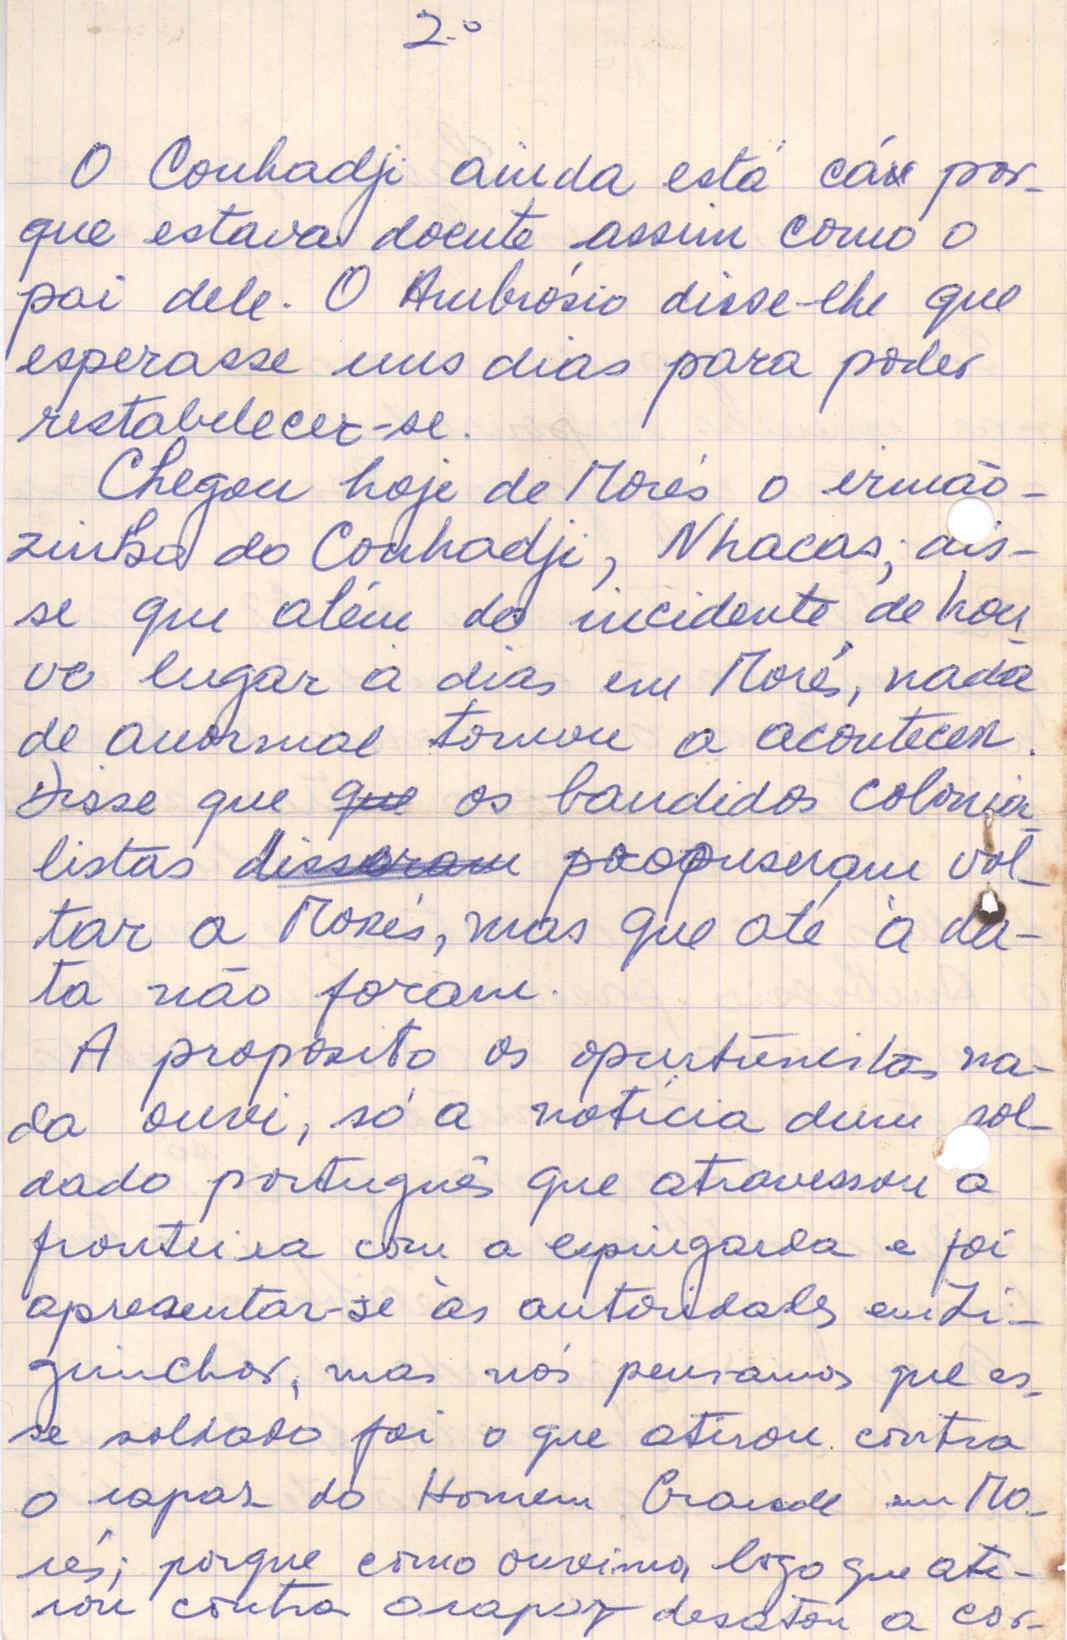 2.º
O Conhadji ainda está cá por-
que estava doente assim como o
pai dele. O Ambrósio disse-lhe que
esperasse uns dias para poder
restabelecer-se.
Chegou hoje de Morés o irmão-
zinho do Conhadji, Nhacas; dis-
se que além do incidente de hou
ve lugar à dias em Morés, nada
de anormal tornou a acontecer.
Disse que que os bandidos colonia
listas disseram propuseram vol-
tar a Morés, mas que até à da-
ta não foram.
A propósito os opurtunistas na-
da ouvi, só a notícia dum sol-
dado português que atravessou a
fronteira com a espingarda e foi
apresentar-se às autoridades em Zi-
guinchor, mas nós pensamos que es-
se soldado foi o que atirou contra
o rapaz do Homem Grande em Mo-
rés; porque como ouvimos logo que ati-
rou contra o rapaz desatou a cor-